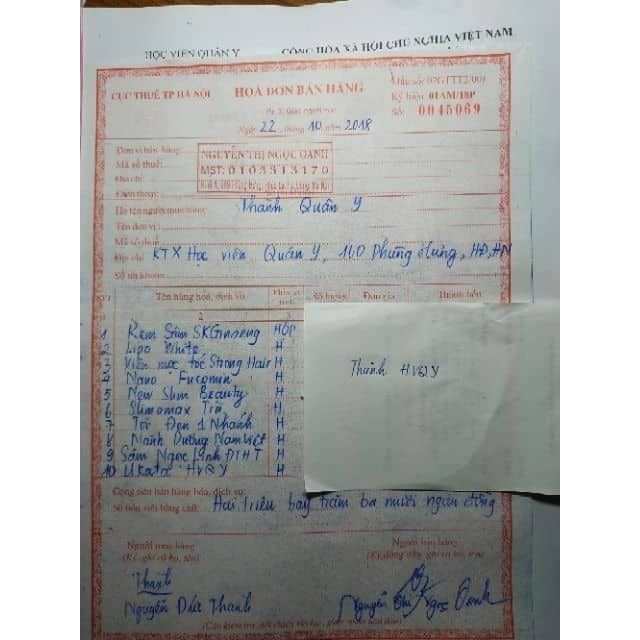 HỌC VIỆN QUÂN Y
CỘNG HÒA XÃ HỘI CHỦ NGHĨA VIỆT NAM
CỤC THUẾ TP HÀ NỘI
HOÁ ĐƠN BÁN HÀNG
Mẫu số: 02GTTT2/001
Ký hiệu: 01AM/18P
Số: 0045069
Ngày 22 tháng 10 năm 2018
Đơn vị bán hàng:
NGUYỄN THỊ NGỌC OANH
Mã số thuế:
MST: 0105313170
Địa chỉ:
Điện thoại:
Họ tên người mua hàng: Thành Quân Y
Tên đơn vị:
Mã số thuế:
Địa chỉ: KTX Học viện Quân Y, 160 Phùng Hưng, HĐ, HN
Số tài khoản:
STT Tên hàng hoá, dịch vụ Đơn vị tính Số lượng Đơn giá Thành tiền
2 3
1 Kem Sâm SKGinseng HỘP
2 Lipo White H
3 Viên mọc tóc Strong Hair H
4 Nano Fucomin H
5 New Slim Beauty H
6 Slimomax Tin H
7 Tỏi Đen 1 Nhánh H
8 Mãnh Dương Nam Việt H
9 Sâm Ngọc Linh ĐTHT H
10 Ukata HVQY H
Thành HVQY
Cộng tiền bán hàng hóa, dịch vụ:
Số tiền viết bằng chữ: Hai triệu bảy trăm ba mươi ngàn đồng
Người mua hàng
(Ký, ghi rõ họ, tên)
Người bán hàng
(Ký, đóng dấu, ghi rõ họ, tên)
Thành
Nguyễn Đức Thành
Nguyễn Thị Ngọc Oanh